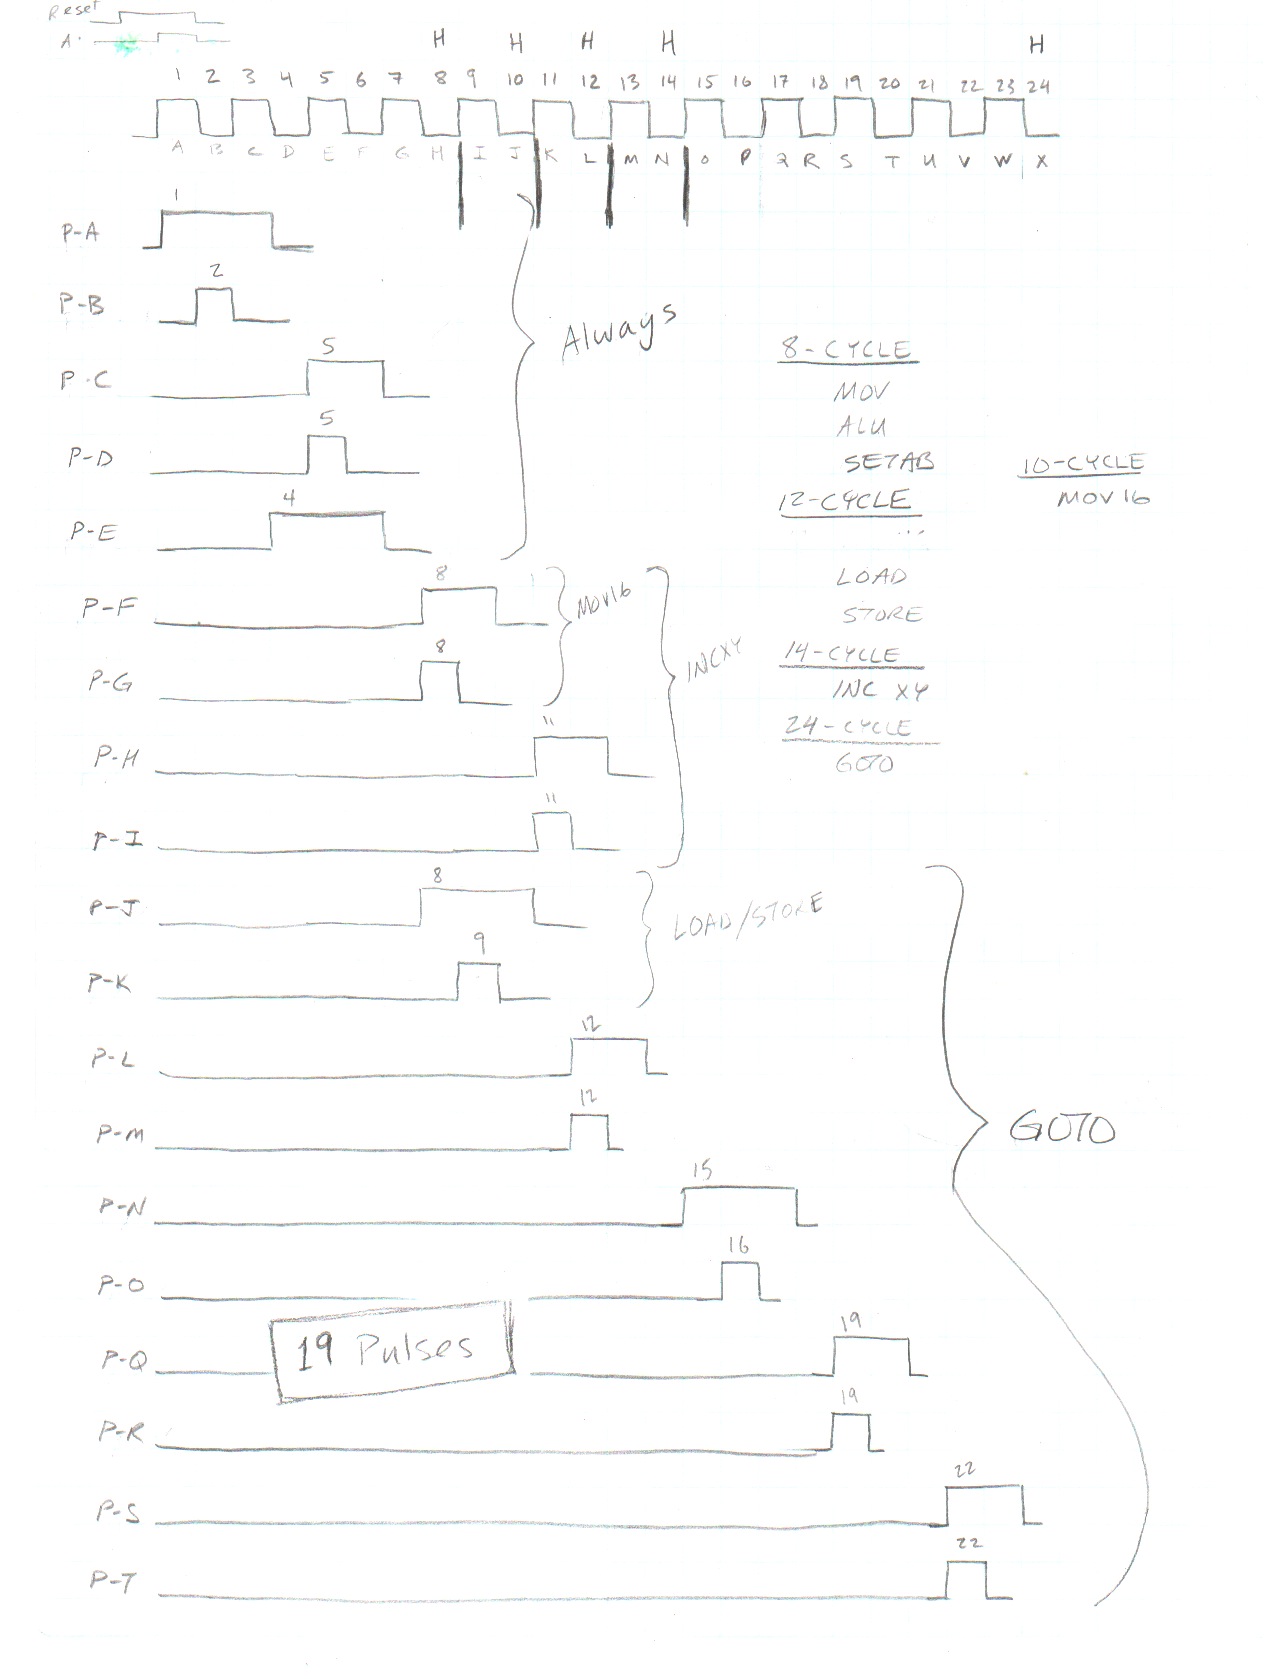 Reset
A
H H H H H
1 2 3 4 5 6 7 8 9 10 11 12 13 14 15 16 17 18 19 20 21 22 23 24
A B C D E F G H I J K L M N O P Q R S T U V W X
1
P-A
2
P-B
Always
5
P-C
8-CYCLE
MOV
ALU
5
P-D
SETAB
10-CYCLE
4
P-E
12-CYCLE
MOV 16
...
8
P-F
MOV16
LOAD
STORE
8
P-G
INCXY
14-CYCLE
INC XY
11
P-H
24-CYCLE
GOTO
11
P-I
8
P-J
LOAD/STORE
9
P-K
12
P-L
12
P-M
GOTO
15
P-N
16
P-O
19 Pulses
19
P-Q
19
P-R
22
P-S
22
P-T